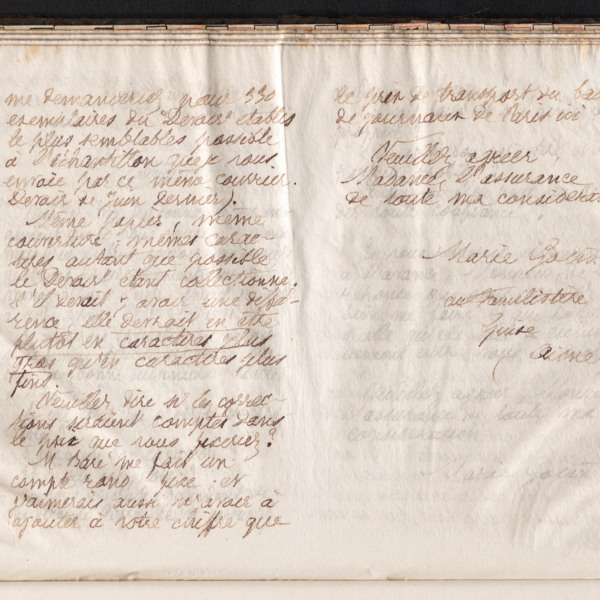 me demanderiez pour 330
exemplaires du "Devoir" établis
le plus semblables possible
à l'échantillon que je vous
envoie par ce même courrier.
Devoir de Juin dernier).
Même papier, même
couverture, mêmes carac-
tères autant que possible
le "Devoir" étant collectionné.
S'il devait y avoir une diffé-
rence, elle devrait en être
plutôt en caractères plus
gros qu'en caractères plus
fins.
Veuillez dire si les correc-
tions seraient comptées dans
le prix que vous fixeriez?
M. Baré me fait un
compte rond fixe et
j'aimerais aussi n'avoir à
ajouter à votre chiffre que
le prix de transport du
de journaux de Paris ici
Veuillez agréer
Madame, l'assurance
de toute ma considération
Marie
au Familistère
Guise
Aisne